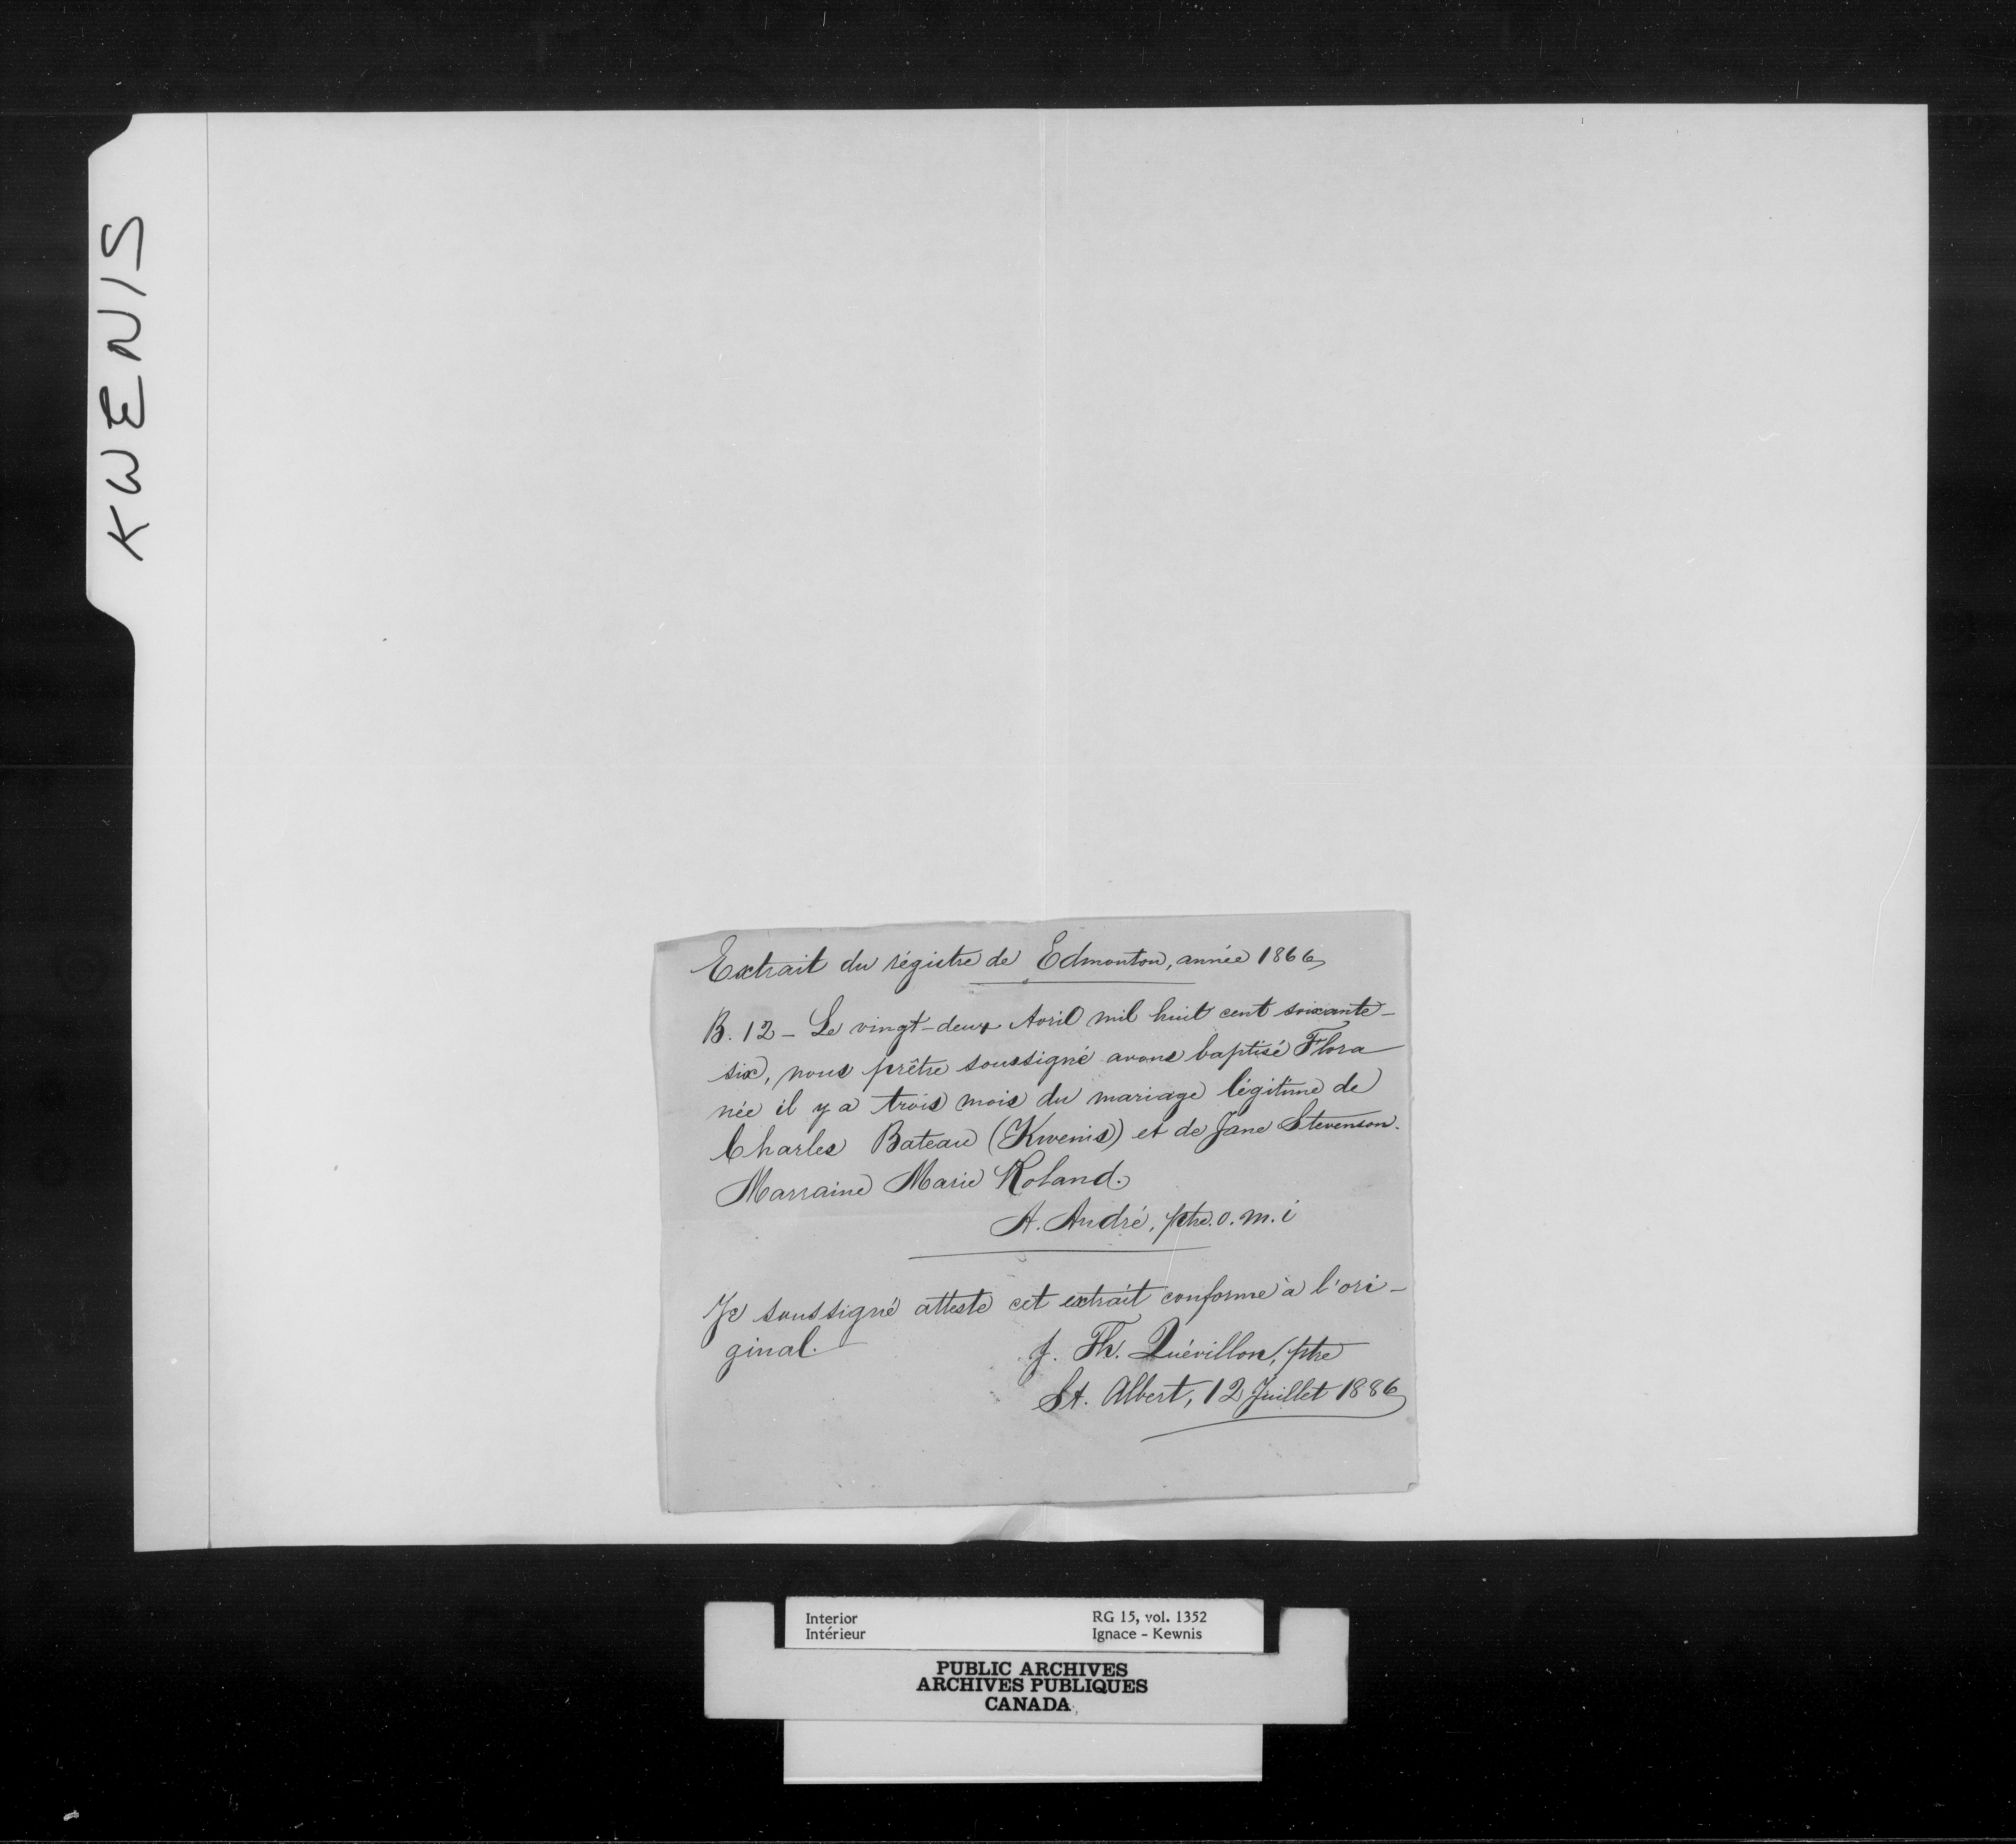 KWENIS
Extrait du régistre de Edmonton, année 1866
B. 12 - Le vingt-deux Avril mil huit cent soixante-
six, nous prêtre soussigné avons baptisé Flora
née il y a trois mois du mariage légitime de
Charles Bateau (Kwenis) et de Jane Stevenson.
Marraine Marie Roland.
A. André, ptre. o. m. i
Je soussigné atteste cet extrait conforme à l'ori-
ginal.
J. Th. Quévillon, ptre
St. Albert, 12 Juillet 1886
Interior RG 15, vol. 1352
Intérieur Ignace - Kewnis
PUBLIC ARCHIVES
ARCHIVES PUBLIQUES
CANADA